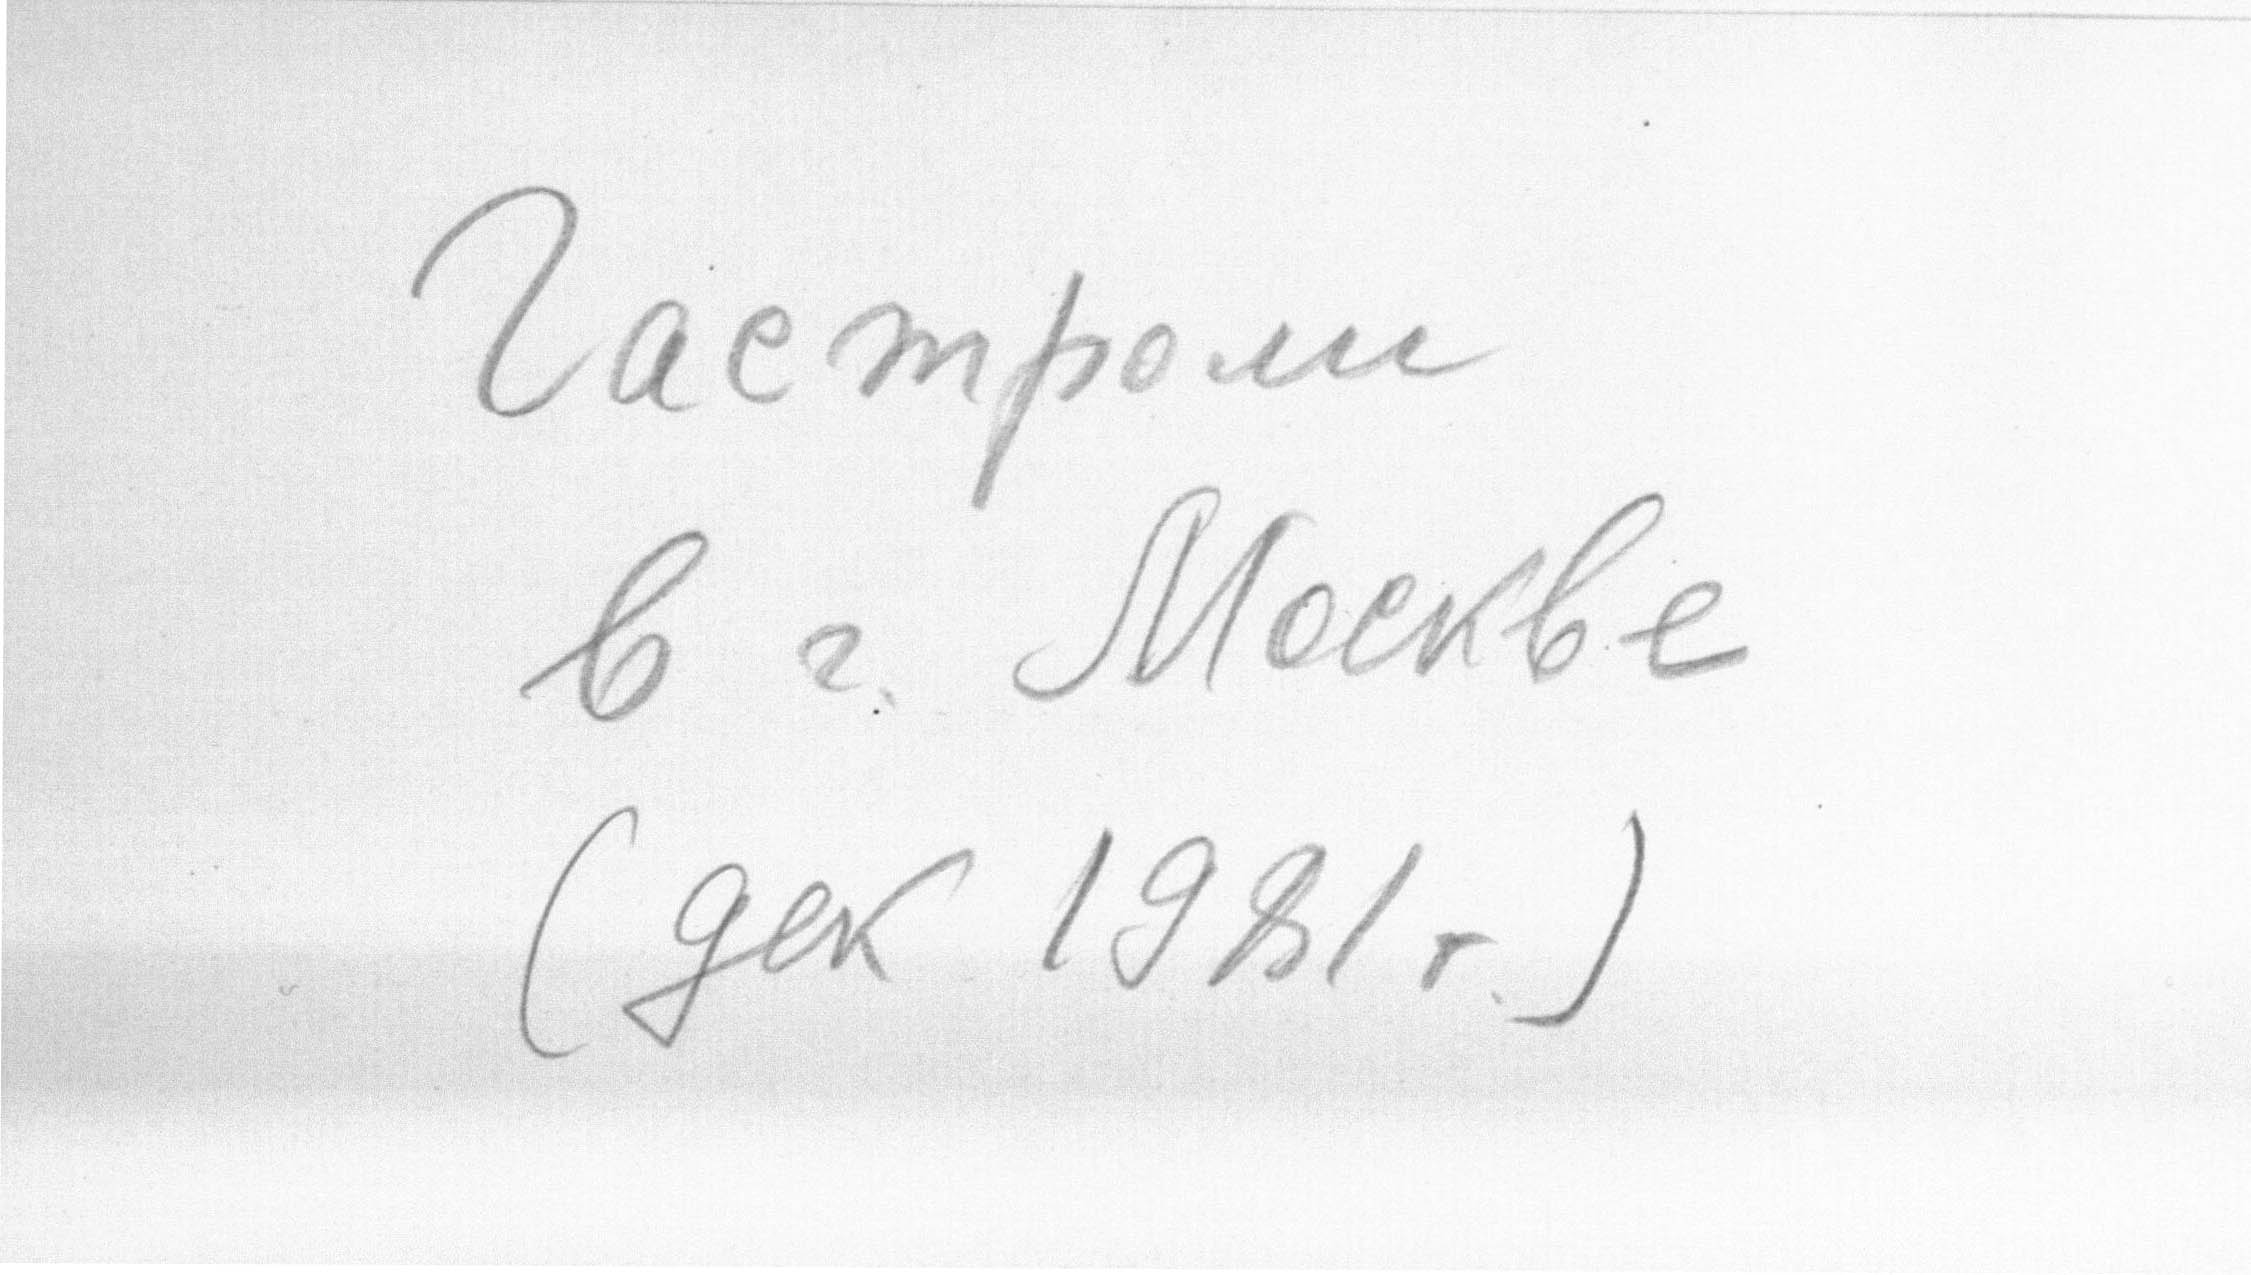 Гастроли
в г. Москве
(дек 1981 г.)